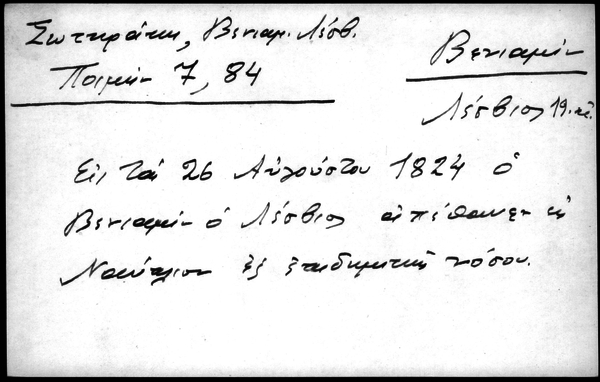 Σωτηράκη, Βενιαμ. Λέσβ.
Ποιμήν 7, 84
Βενιαμίν
Λέσβιος 19. αἰ.
Εἰς τάς 26 Αὐγούστου 1824 ὁ
Βενιαμίν ὁ Λέσβιος ἀπέθανεν εἰς
Ναύπλιον ἐξ ἐπιδημικῆς νόσου.